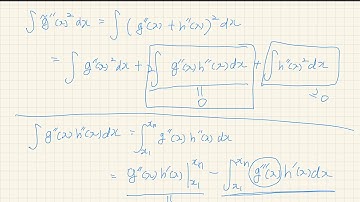 ∫ g̃''(x)² dx = ∫ (g''(x) + h''(x))² dx
= ∫ g''(x)² dx + 2∫ g''(x) h''(x) dx + ∫ h''(x)² dx
|| 0 ≥ 0
∫ g''(x) h''(x) dx = ∫_{x₁}^{xₙ} g''(x) h''(x) dx
= g''(x) h'(x) |_{x₁}^{xₙ} − ∫_{x₁}^{xₙ} g'''(x) h'(x) dx
||